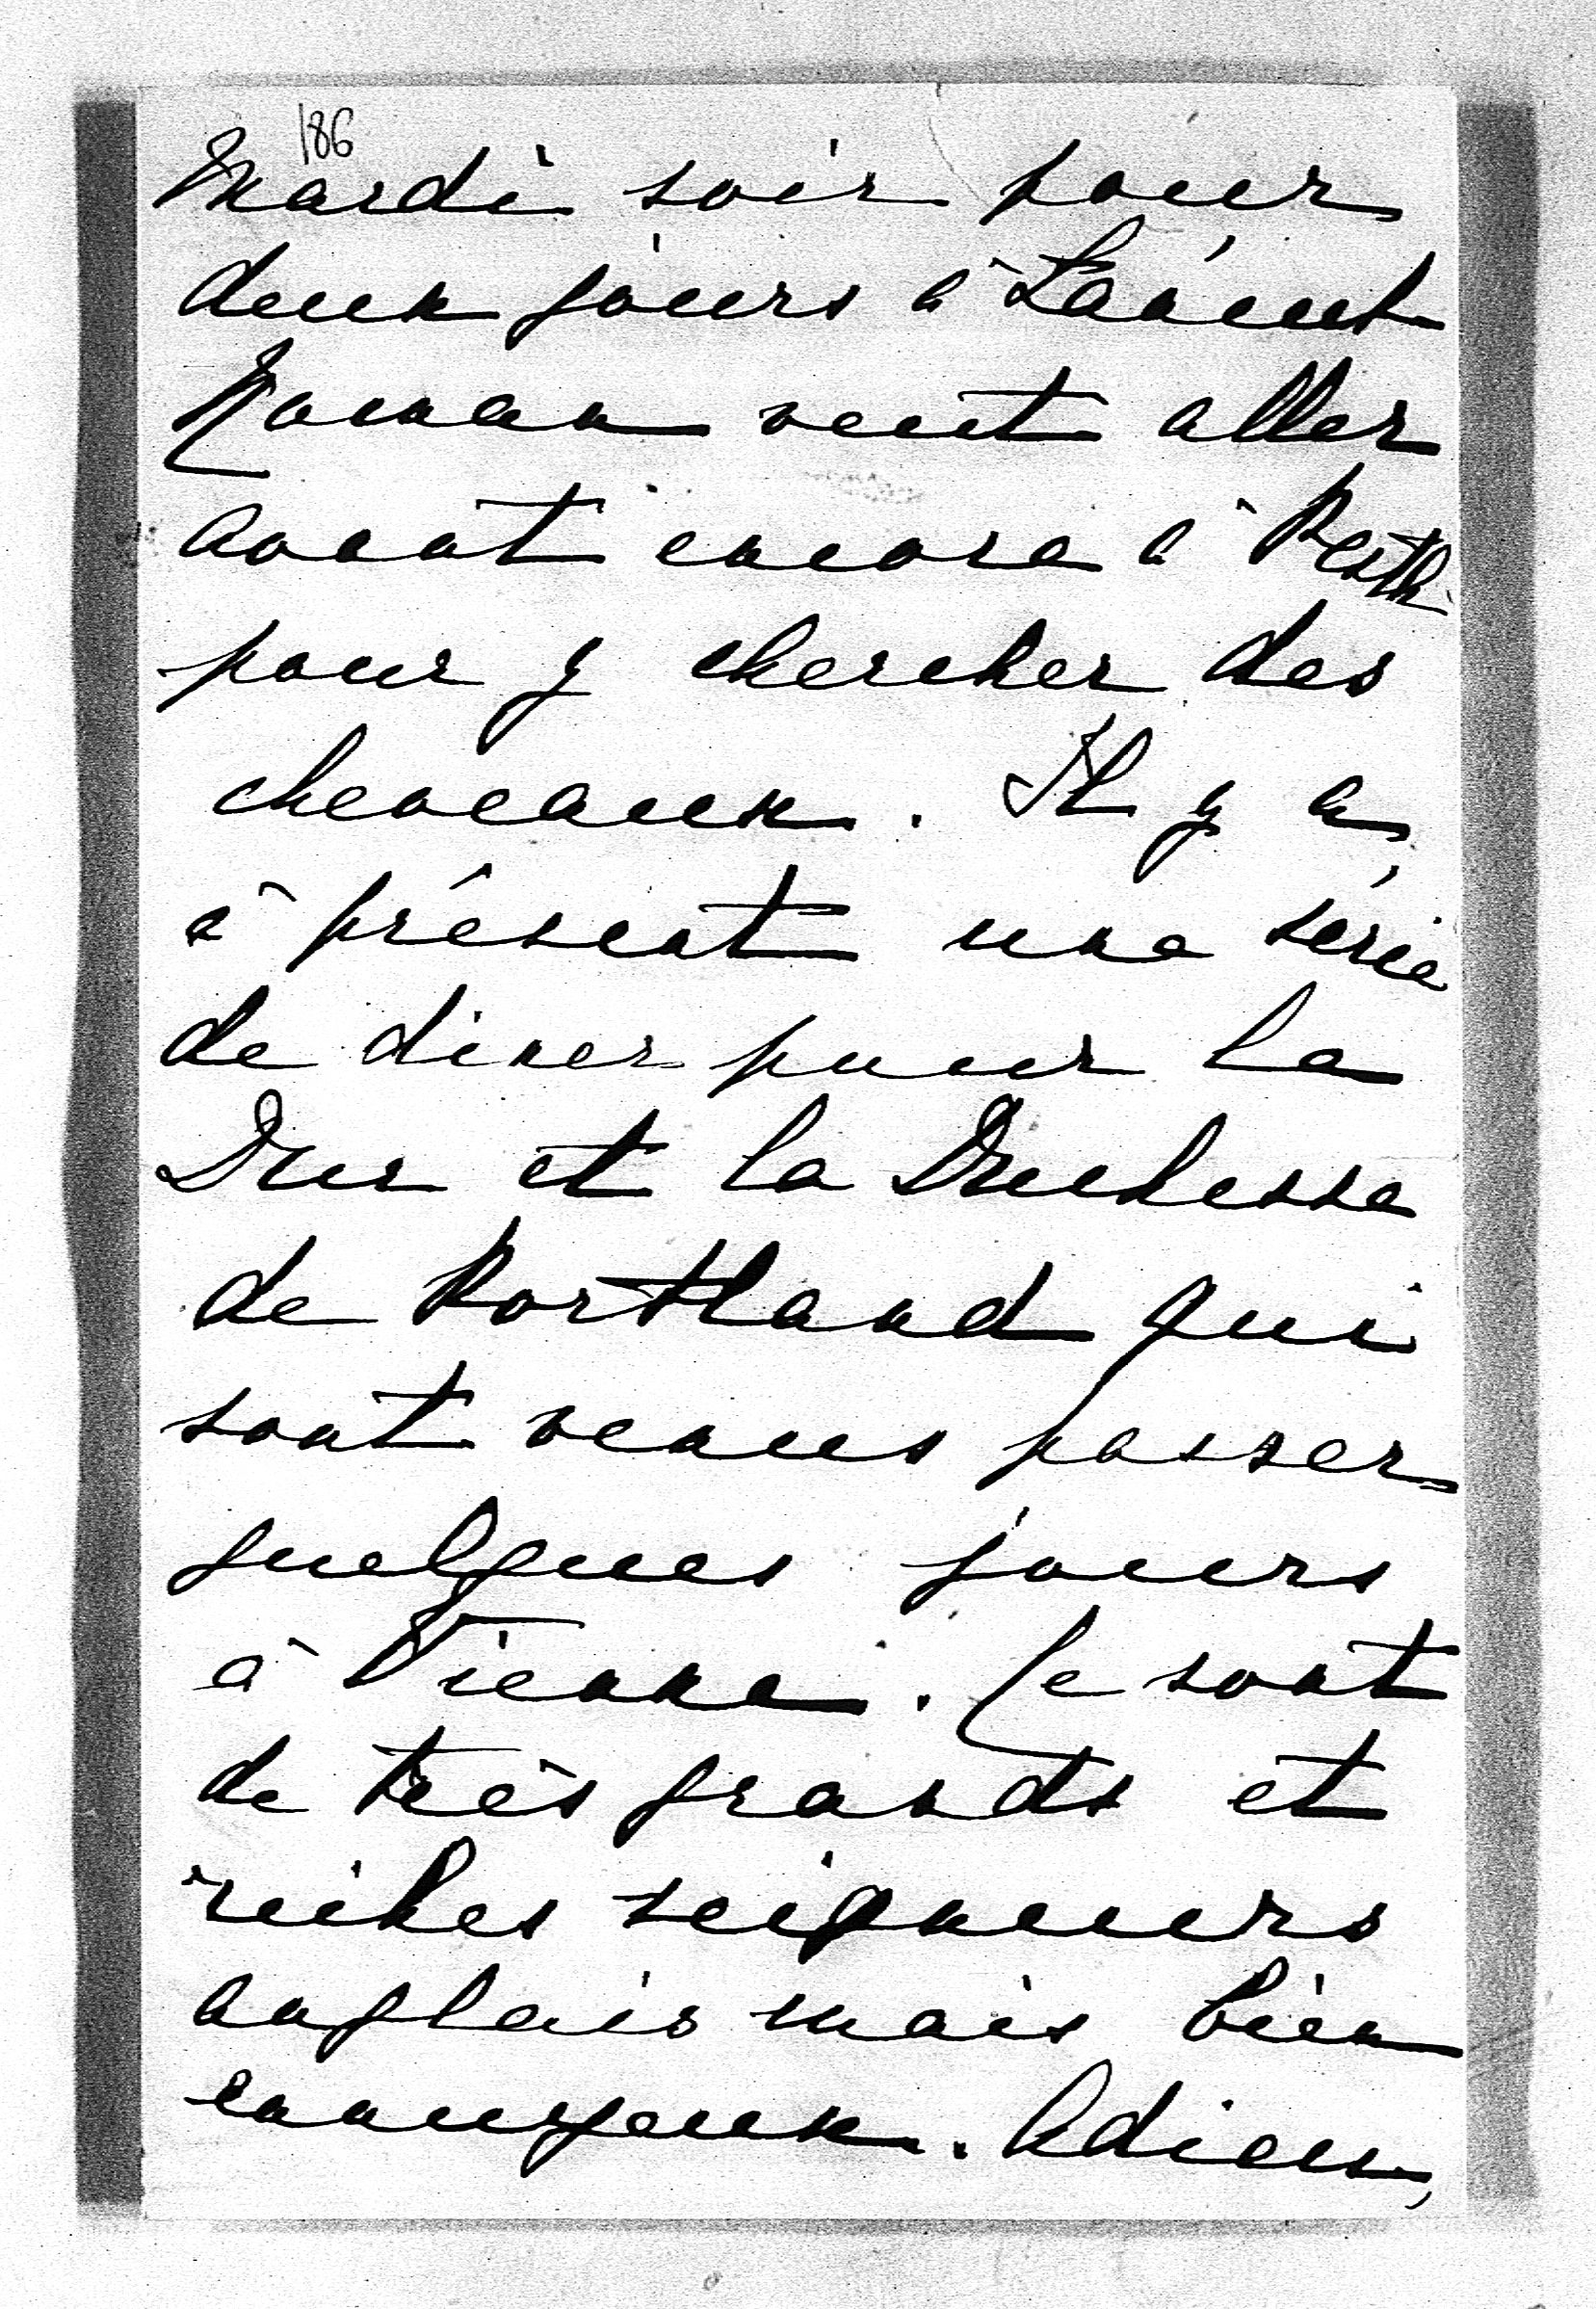 186
Mardi soir pour
deux jours à Łańcut
Roman veut aller
avant encore à Pesth
pour y chercher des
cheveaux. Il y a
à présent une série
de diner pour la
Duc et la Duchesse
de Portland qui
sont venus passer
quelques jours
à Vienne. Ce sont
de très grands et
riches seigneurs
anglais mais bien
ennuyeux. Adieu,